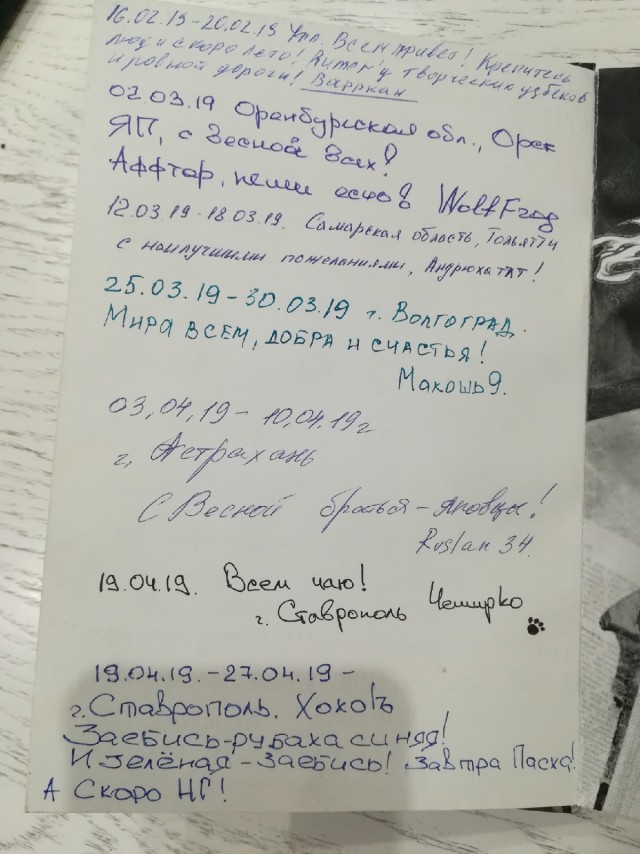 16.02.19-20.02.19 Уфа. Всем привет! Крепитесь
люди скоро лето! творческих
и ровной дороги! Варркан
02.03.19 Оренбургская обл., Орск
ЯП, с Весной Всех!
Аффтор, пеши есчо! WolfFrog
12.03.19-18.03.19. Самарская область, Тольятти
с наилучшими пожеланиями, Андрюха тлт!
25.03.19-30.03.19 г. Волгоград.
Мира всем, добра и счастья!
Макошь9.
03,04,19-10,04.19г
г, Астрахань
С Весной братья-яповцы!
Ruslan 34.
19.04.19. Всем чаю!
г. Ставрополь Чеширко
19.04.19.-27.04.19-
г.Ставрополь. ХохоЪ
Заебись-рубаха синяя!
И зелёная-Заебись! Завтра Пасха!
А Скоро НГ!